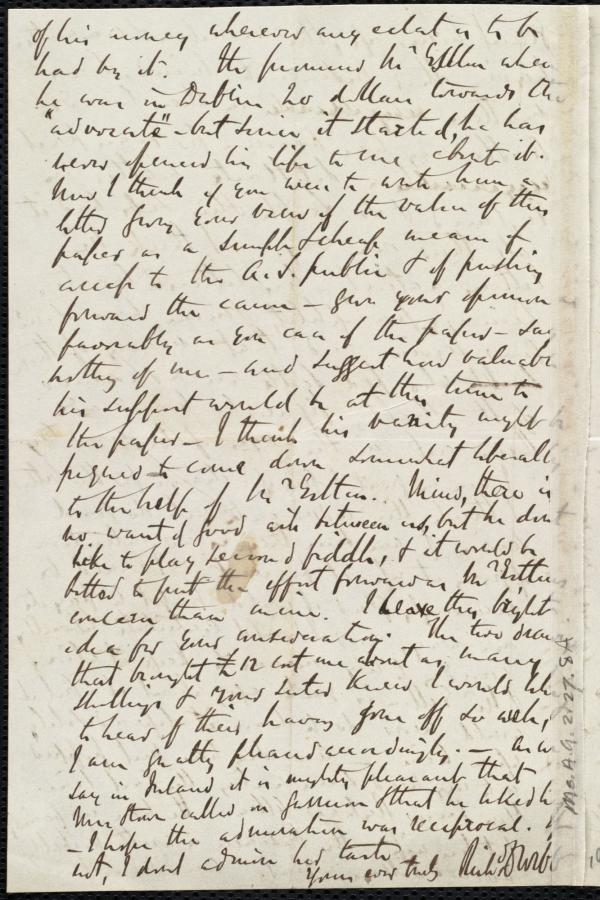 of his money wherever any eclat is to be
had by it. He promised Mr Estlin when
he was in Dublin 20 dollars towards the
"advocate" - but since it started, he has
never opened his lips to me about it.
Now I think if you were to write him a
letter giving your view of the value of this
paper as a simple & cheap means of
access to the A.S. public & of pushing
forward the cause - give your opinion
favorably as you can of the paper - say
nothing of me - and suggest how valuable
his support would be at this time to
the paper - I think his vanity might be
piqued to come down somewhat liberally
to the help of Mr Estlin. Mind, there is
no want of good will between us, but he dont
like to play second fiddle, & it would be
better to put the effort forward as Mr Estlin's
concern than mine. I leave this bright
idea for your consideration. The two
that brought £12 cost me about as many
shillings & your sister knew I would like
to hear of their having gone off so well,
I am greatly pleased accordingly. - As we
say in Ireland it is mighty pleasant that
Mrs Stowe called on Garrison & that he liked her
- I hope the admiration was reciprocal. If
not, I dont admire her taste
Yours ever truly Richd D Webb
Ms.A.9.2.27.8A